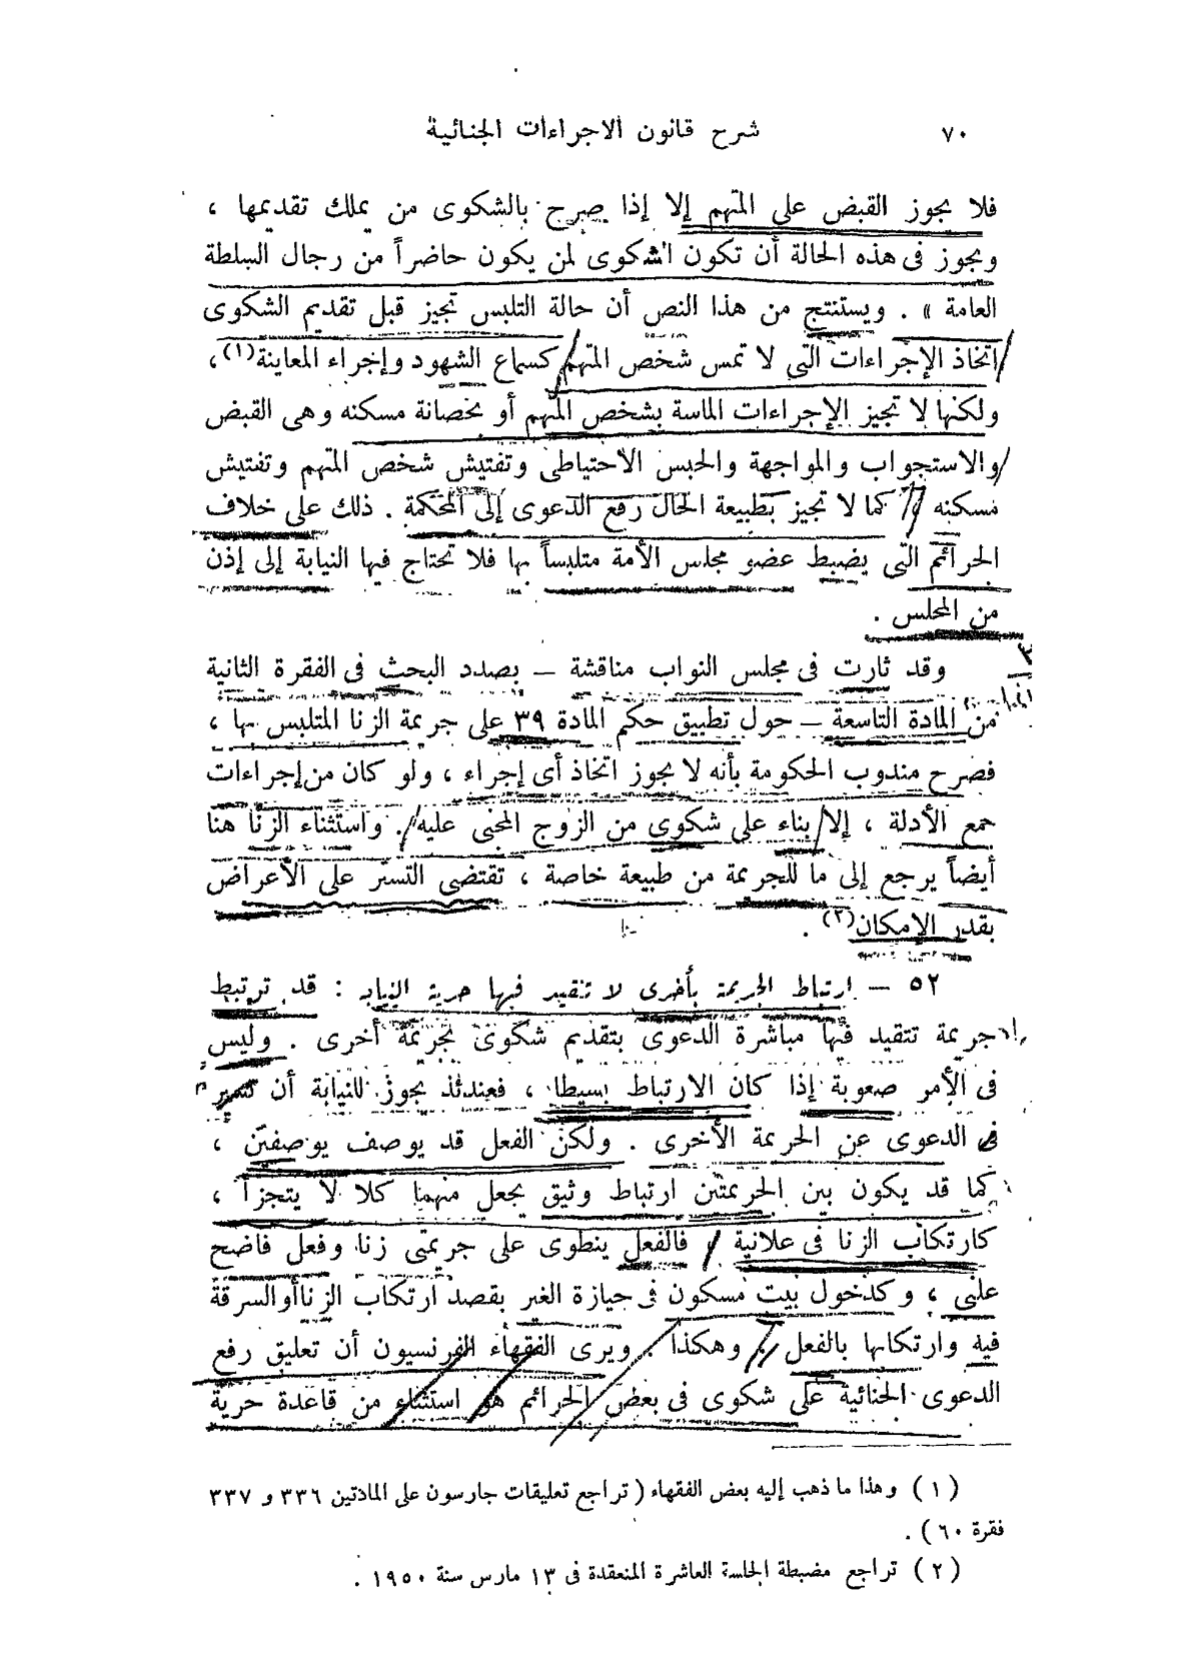 ٧٠
شرح قانون الاجراءات الجنائية
فلا يجوز القبض على المتهم إلا إذا صرح بالشكوى من يملك تقديمها ،
ويجوز فى هذه الحالة أن تكون الشكوى لمن يكون حاضراً من رجال السلطة
العامة » . ويستنتج من هذا النص أن حالة التلبس تجيز قبل تقديم الشكوى
اتخاذ الإجراءات التى لا تمس شخص المتهم كسماع الشهود وإجراء المعاينة(١)،
ولكنها لا تجيز الإجراءات الماسة بشخص المتهم أو بحصانة مسكنه وهى القبض
والاستجواب والمواجهة والحبس الاحتياطى وتفتيش شخص المتهم وتفتيش
مسكنه كما لا تجيز بطبيعة الحال رفع الدعوى إلى المحكمة . ذلك على خلاف
الجرائم التى يضبط عضو مجلس الأمة متلبساً بها فلا تحتاج فيها النيابة إلى إذن
من المجلس .
وقد ثارت فى مجلس النواب مناقشة – بصدد البحث فى الفقرة الثانية
من المادة التاسعة – حول تطبيق حكم المادة ٣٩ على جريمة الزنا المتلبس بها ،
فصرح مندوب الحكومة بأنه لا يجوز اتخاذ أى إجراء ، ولو كان من إجراءات
جمع الأدلة ، إلا بناء على شكوى من الزوج المجنى عليه . واستثناء الزنا هنا
أيضاً يرجع إلى ما للجريمة من طبيعة خاصة ، تقتضى التستر على الأعراض
بقدر الإمكان(٢) .
٥٢ – ارتباط الجريمة بأخرى لا تتقيد فيها حرية النيابة : قد ترتبط
جريمة تتقيد فيها مباشرة الدعوى بتقديم شكوى بجريمة أخرى . وليس
فى الأمر صعوبة إذا كان الارتباط بسيطا ، فعندئذ يجوز للنيابة أن تسير
فى الدعوى عن الجريمة الأخرى . ولكن الفعل قد يوصف بوصفين ،
كما قد يكون بين الجريمتين ارتباط وثيق يجعل منهما كلا لا يتجزأ ،
كارتكاب الزنا فى علانية فالفعل ينطوى على جريمتى زنا وفعل فاضح
علنى ، وكدخول بيت مسكون فى حيازة الغير بقصد ارتكاب الزنا أو السرقة
فيه وارتكابها بالفعل . وهكذا . ويرى الفقهاء الفرنسيون أن تعليق رفع
الدعوى الجنائية على شكوى فى بعض الجرائم هو استثناء من قاعدة حرية
(١) وهذا ما ذهب إليه بعض الفقهاء (تراجع تعليقات جارسون على المادتين ٣٣٦ و ٣٣٧
فقرة ٦٠) .
(٢) تراجع مضبطة الجلسة العاشرة المنعقدة فى ١٣ مارس سنة ١٩٥٠ .